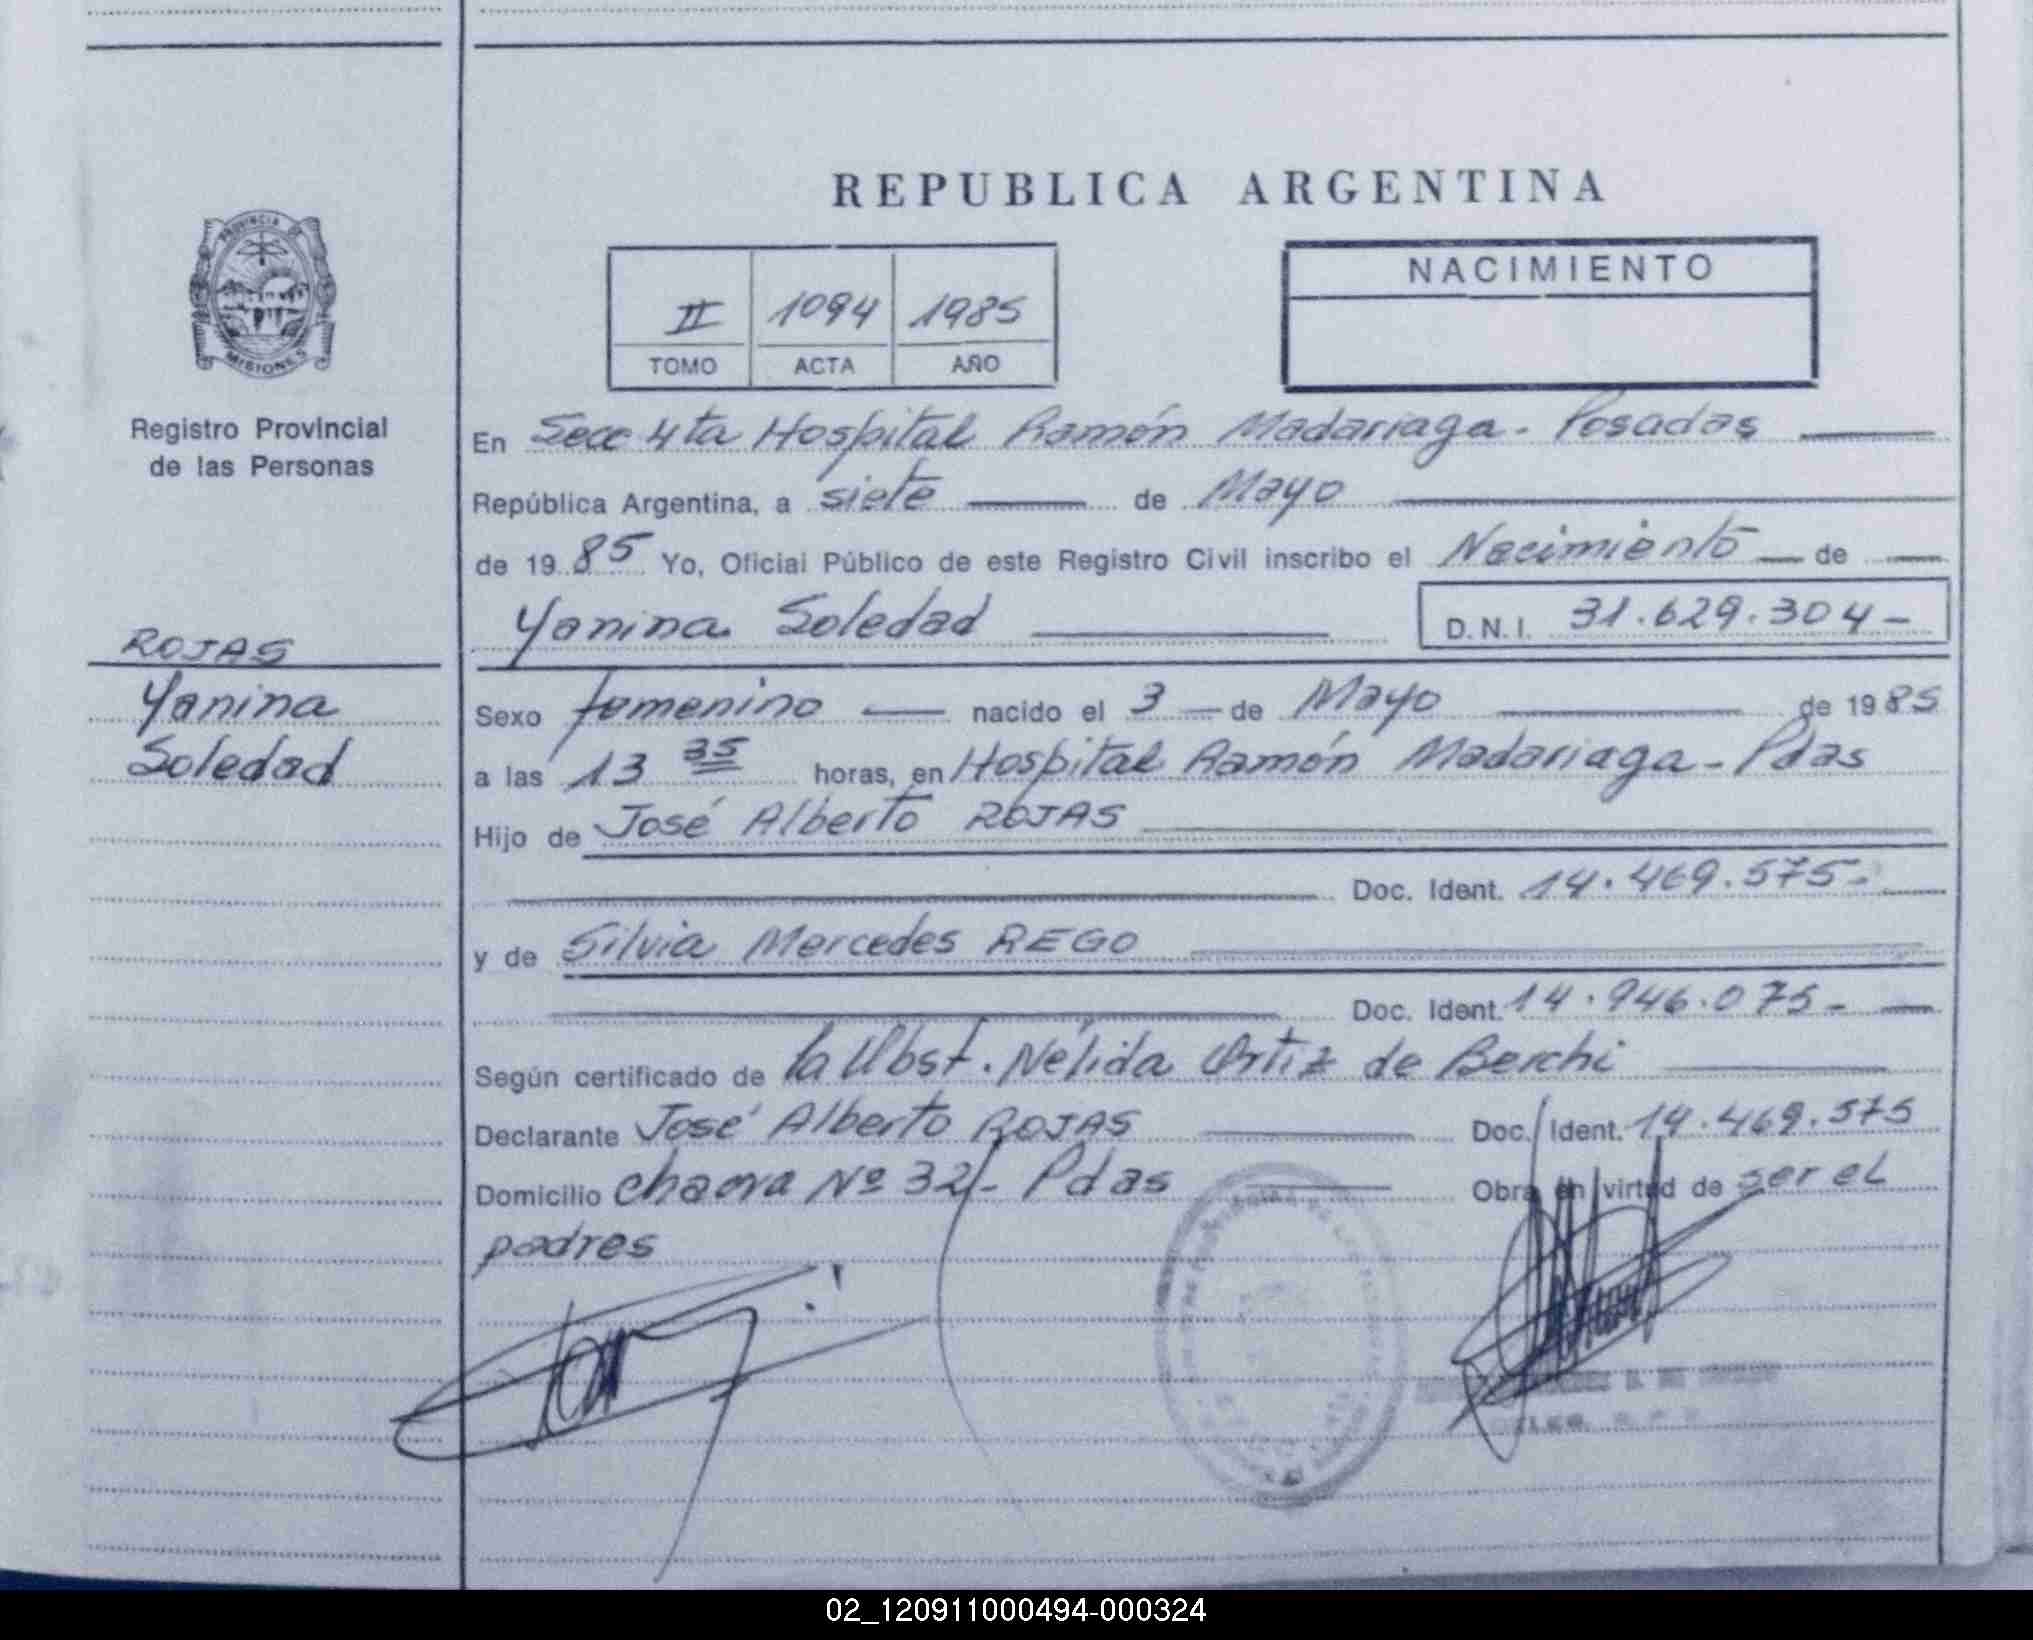 REPUBLICA ARGENTINA
PROVINCIA DE
MISIONES
Registro Provincial
de las Personas
II 1094 1985
TOMO ACTA AÑO
NACIMIENTO
En Secc 4ta Hospital Ramón Madariaga - Posadas
República Argentina, a siete de Mayo
de 1985 Yo, Oficial Público de este Registro Civil inscribo el Nacimiento de
Yanina Soledad D.N.I. 31.629.304-
ROJAS
Yanina
Soledad
Sexo femenino nacido el 3 de Mayo de 1985
a las 13 35 horas, en Hospital Ramón Madariaga - Pdas
Hijo de José Alberto ROJAS
Doc. Ident. 14.469.575-
y de Silvia Mercedes REGO
Doc. Ident. 14.946.075-
Según certificado de la Obst. Nélida Ortiz de Berchi
Declarante José Alberto ROJAS Doc. Ident. 14.469.575
Domicilio chacra Nº 32/- Pdas Obra en virtud de ser el
padres
02_120911000494-000324